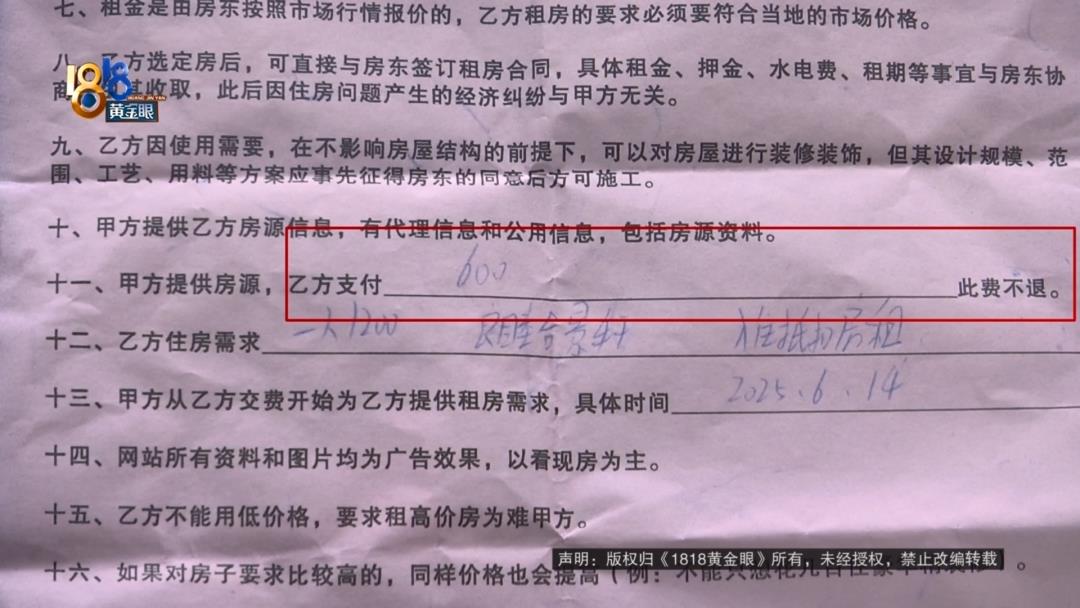 七、租金是由房东按照市场行情报价的，乙方租房的要求必须要符合当地的市场价格。
八、乙方选定房后，可直接与房东签订租房合同，具体租金、押金、水电费、租期等事宜与房东协
商 收取，此后因住房问题产生的经济纠纷与甲方无关。
1818
黄金眼
九、乙方因使用需要，在不影响房屋结构的前提下，可以对房屋进行装修装饰，但其设计规模、范
围、工艺、用料等方案应事先征得房东的同意后方可施工。
十、甲方提供乙方房源信息，有代理信息和公用信息，包括房源资料。
十一、甲方提供房源，乙方支付 600 此费不退。
十二、乙方住房需求 1200 房租
十三、甲方从乙方交费开始为乙方提供租房需求，具体时间 2025.6.14
十四、网站所有资料和图片均为广告效果，以看现房为主。
十五、乙方不能用低价格，要求租高价房为难甲方。
十六、如果对房子要求比较高的，同样价格也会提高（例：
声明：版权归《1818黄金眼》所有，未经授权，禁止改编转载